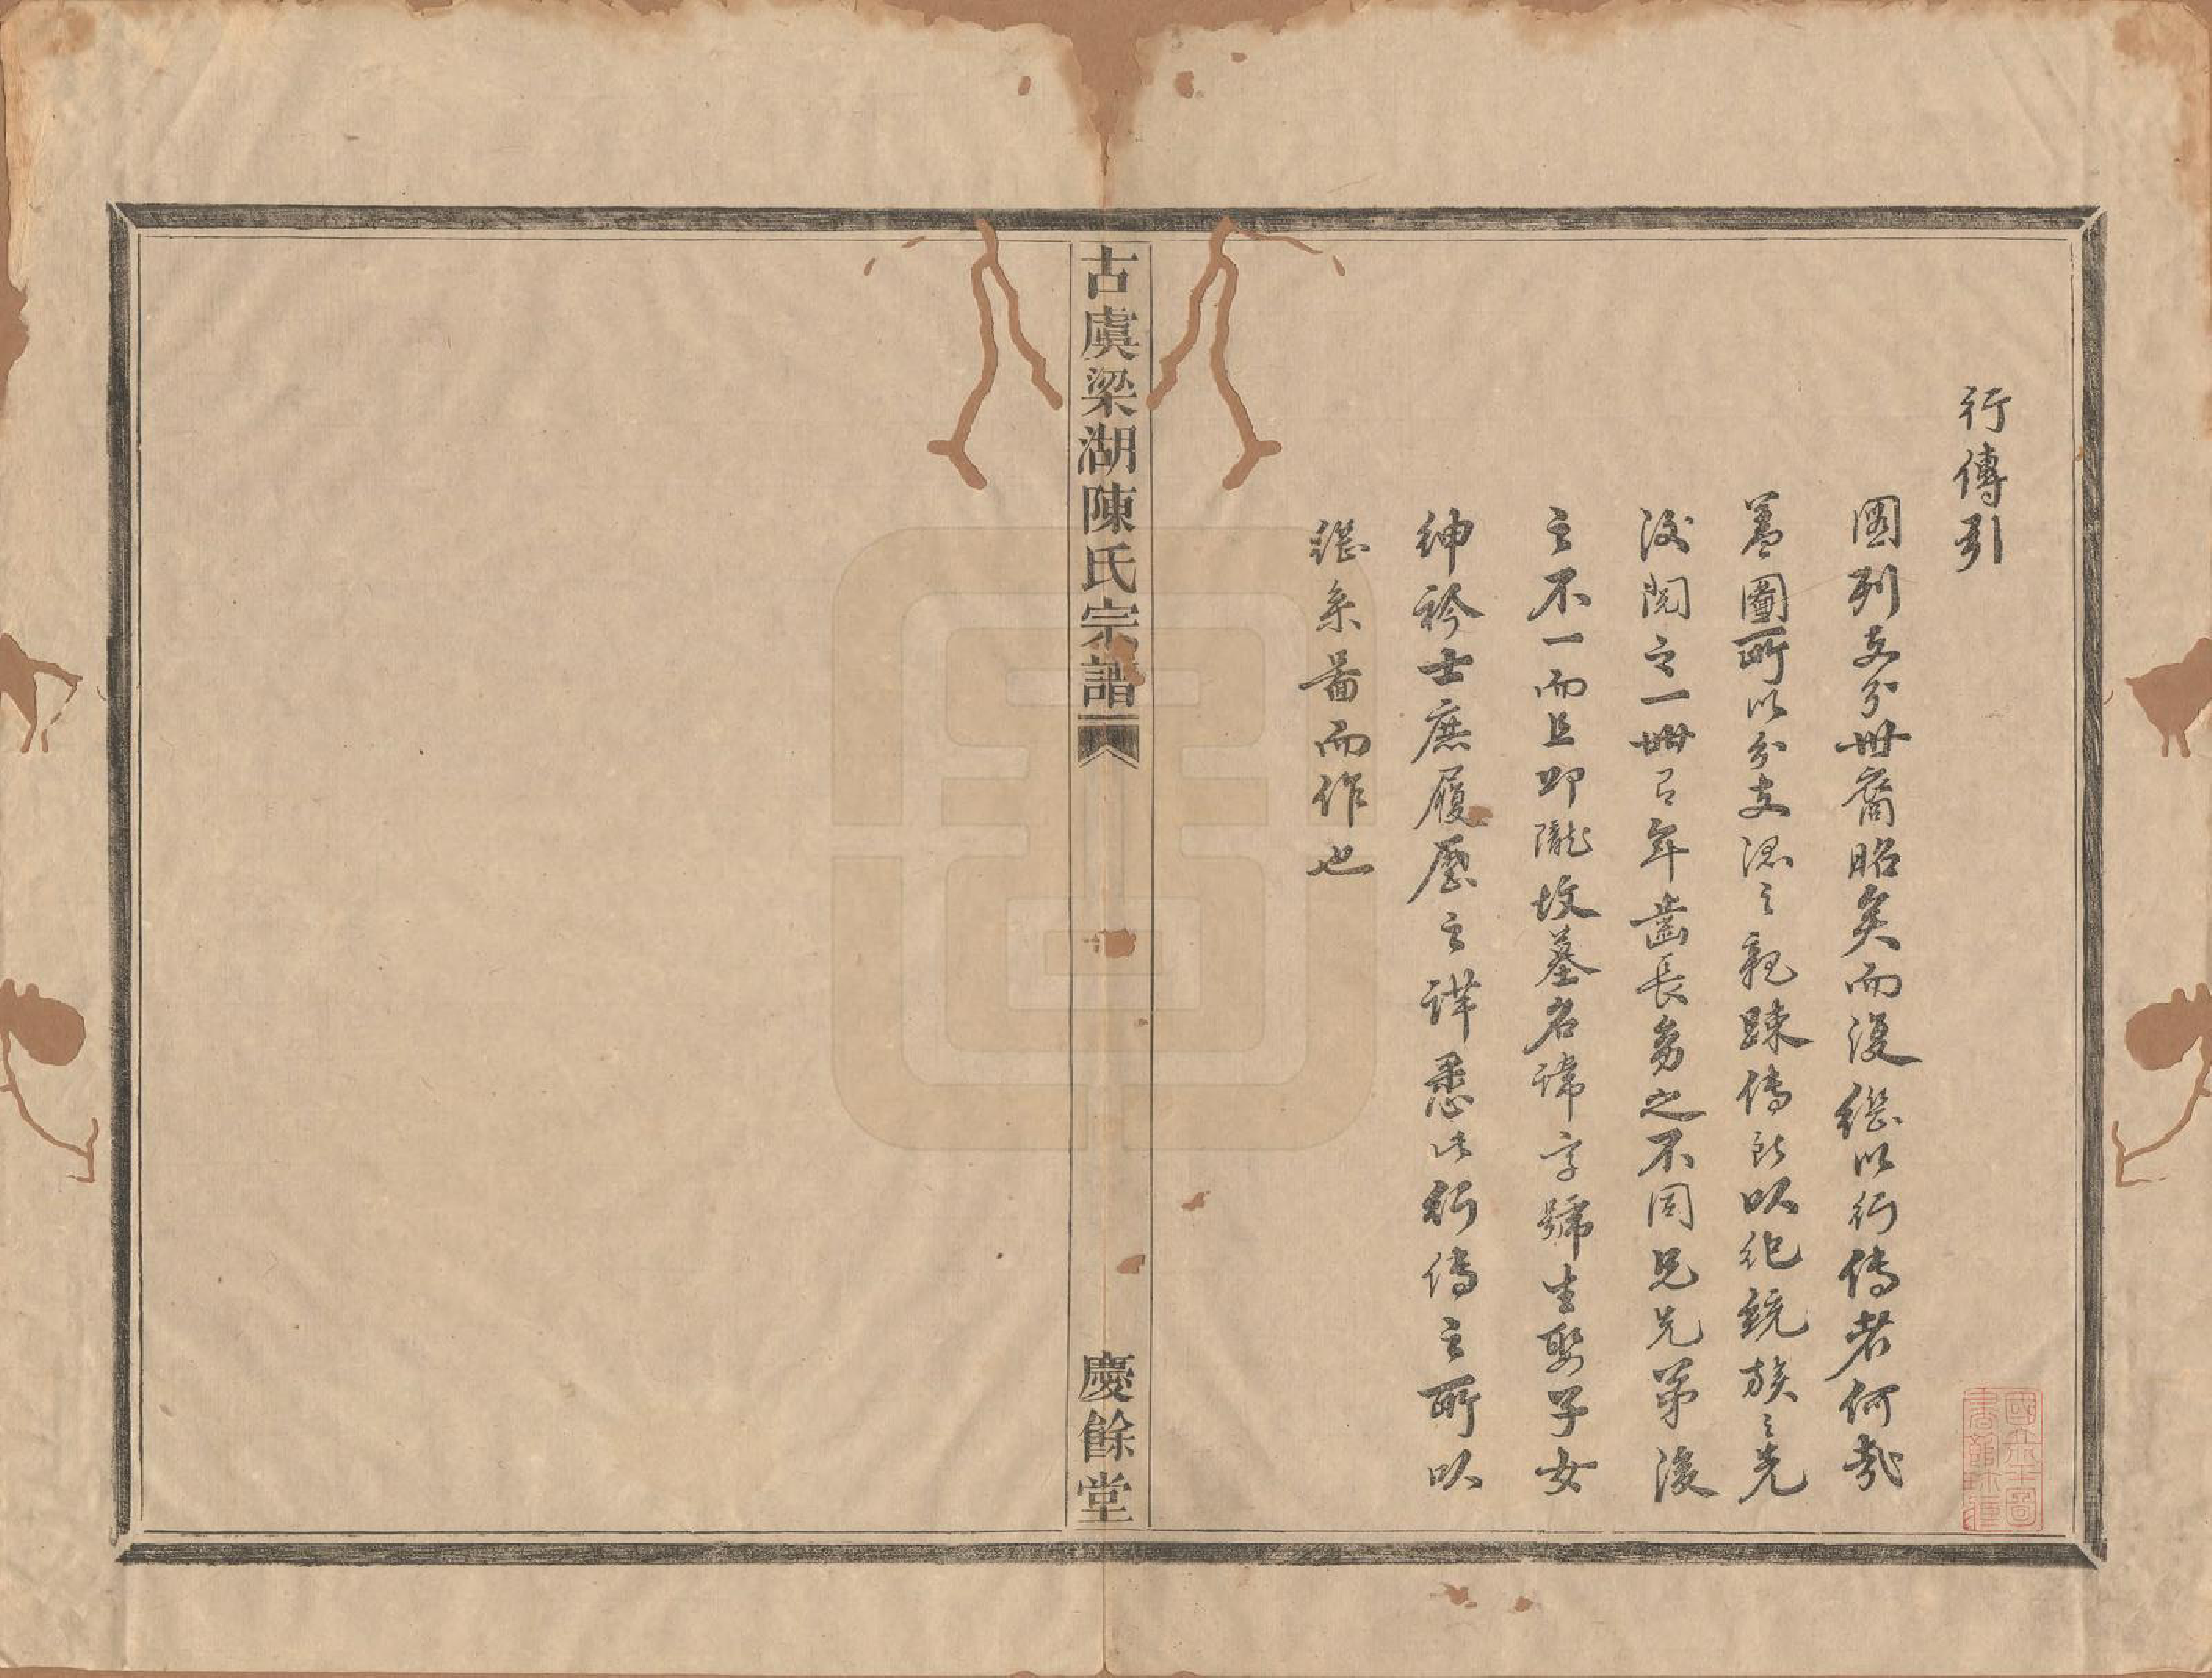 行傳引
圖列支分世裔昭矣而復继以行傳者何哉
蓋圖所以分支派之親踈傳所以紀統族之先
後閱之一世年齒長之不同兄先弟後
之不一而且邱隴坟墓名諱字號生娶子女
紳衿士庶履歷之詳悉此行傳之所以
继系啚而作也
古虞梁湖陳氏宗譜
慶餘堂
國立北平圖
書館珍藏